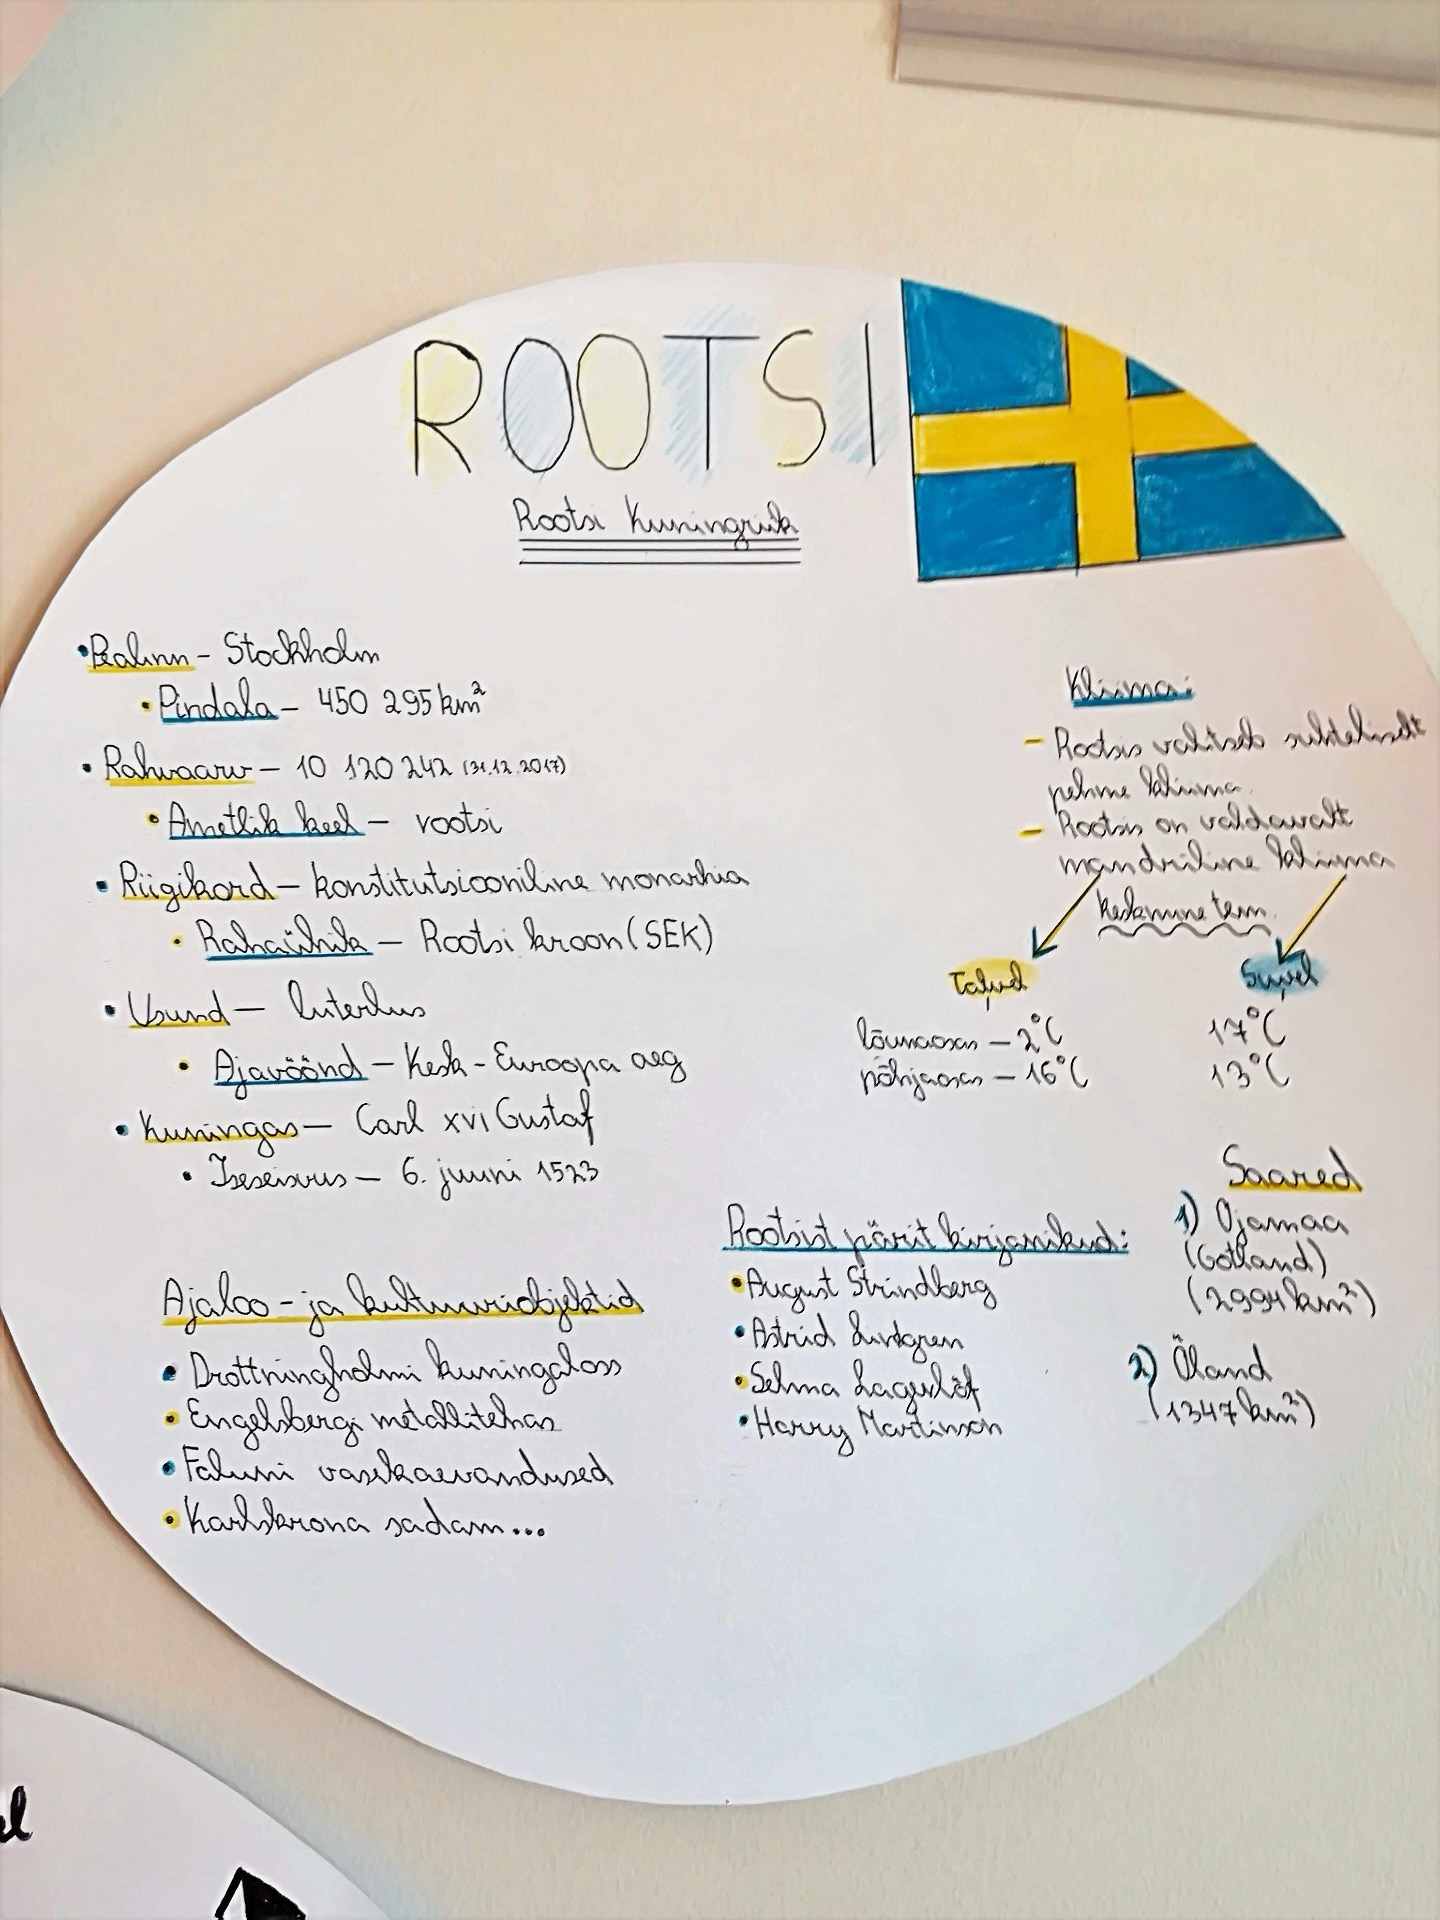 ROOTSI
Rootsi Kuningriik
• Pealinn - Stockholm
• Pindala - 450 295 km²
• Rahvaarv - 10 120 242 (31.12.2017)
• Ametlik keel - rootsi
• Riigikord - konstitutsiooniline monarhia
• Rahaühik - Rootsi kroon (SEK)
• Usund - luterlus
• Ajavöönd - Kesk-Euroopa aeg
• Kuningas - Carl XVI Gustaf
• Iseseisvus - 6. juuni 1523
Ajaloo- ja kultuuriobjektid
• Drottningholmi kuningaloss
• Engelsbergi metallitehas
• Faluni vasekaevandused
• Karlskrona sadam...
Kliima:
- Rootsis valitseb suhteliselt
pehme kliima.
- Rootsis on valdavalt
mandriline kliima
keskmine tem.
Talvel Suvel
lõunaosas -2°C 17°C
põhjaosas -16°C 13°C
Rootsist pärit kirjanikud:
• August Strindberg
• Astrid Lindgren
• Selma Lagerlöf
• Harry Martinson
Saared
1) Ojamaa
(Gotland)
(2994 km²)
2) Öland
(1347 km²)